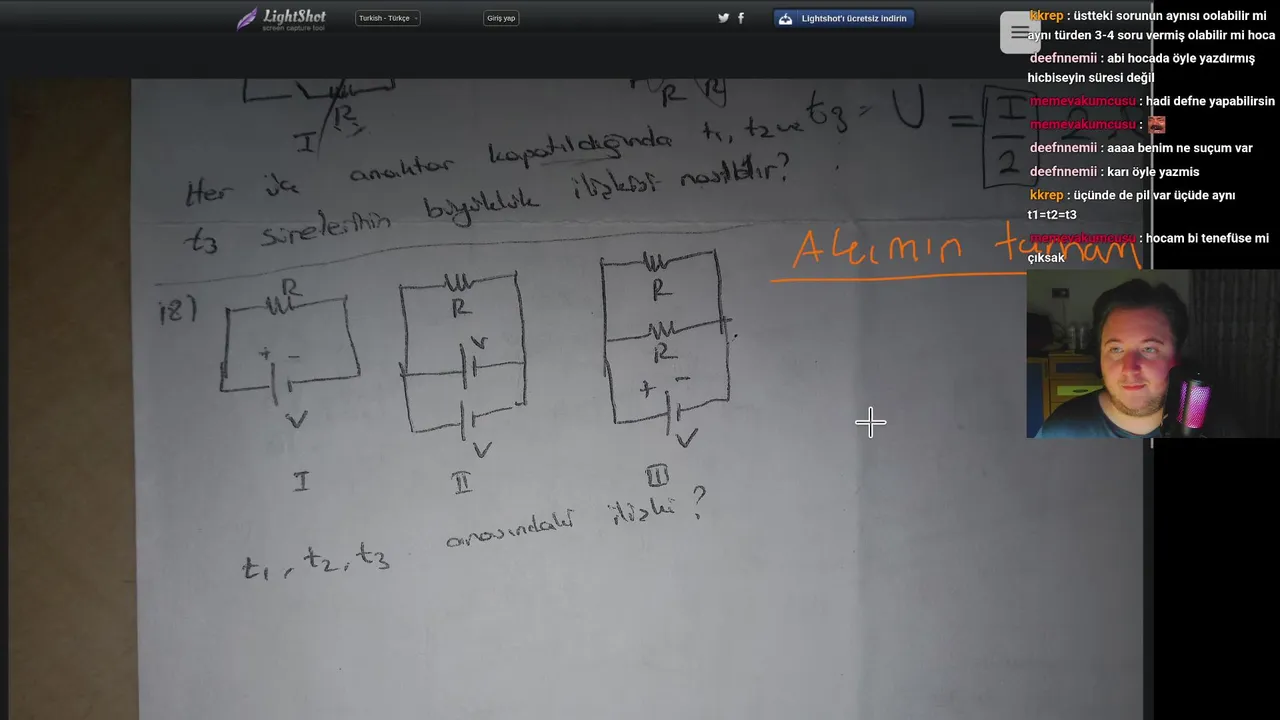 LightShot
screen capture tool
Turkish - Türkçe
Giriş yap
Lightshot'ı ücretsiz indirin
R
R R
I
t3 = U = I/2
Her iki anahtar kapatıldığında t1, t2 ve
t3 sürelerinin büyüklük ilişkisi nasıldır?
Akımın tamam
18)
R
+ -
V
I
R
V
V
II
R
R
+ -
V
III
t1, t2, t3 arasındaki ilişki?
kkrep : üstteki sorunun aynısı oolabilir mi
aynı türden 3-4 soru vermiş olabilir mi hoca
deefnnemii : abi hocada öyle yazdırmış
hicbiseyin süresi değil
memevakumcusu : hadi defne yapabilirsin
memevakumcusu :
deefnnemii : aaaa benim ne suçum var
deefnnemii : karı öyle yazmis
kkrep : üçünde de pil var üçüde aynı
t1=t2=t3
memevakumcusu : hocam bi tenefüse mi
çıksak